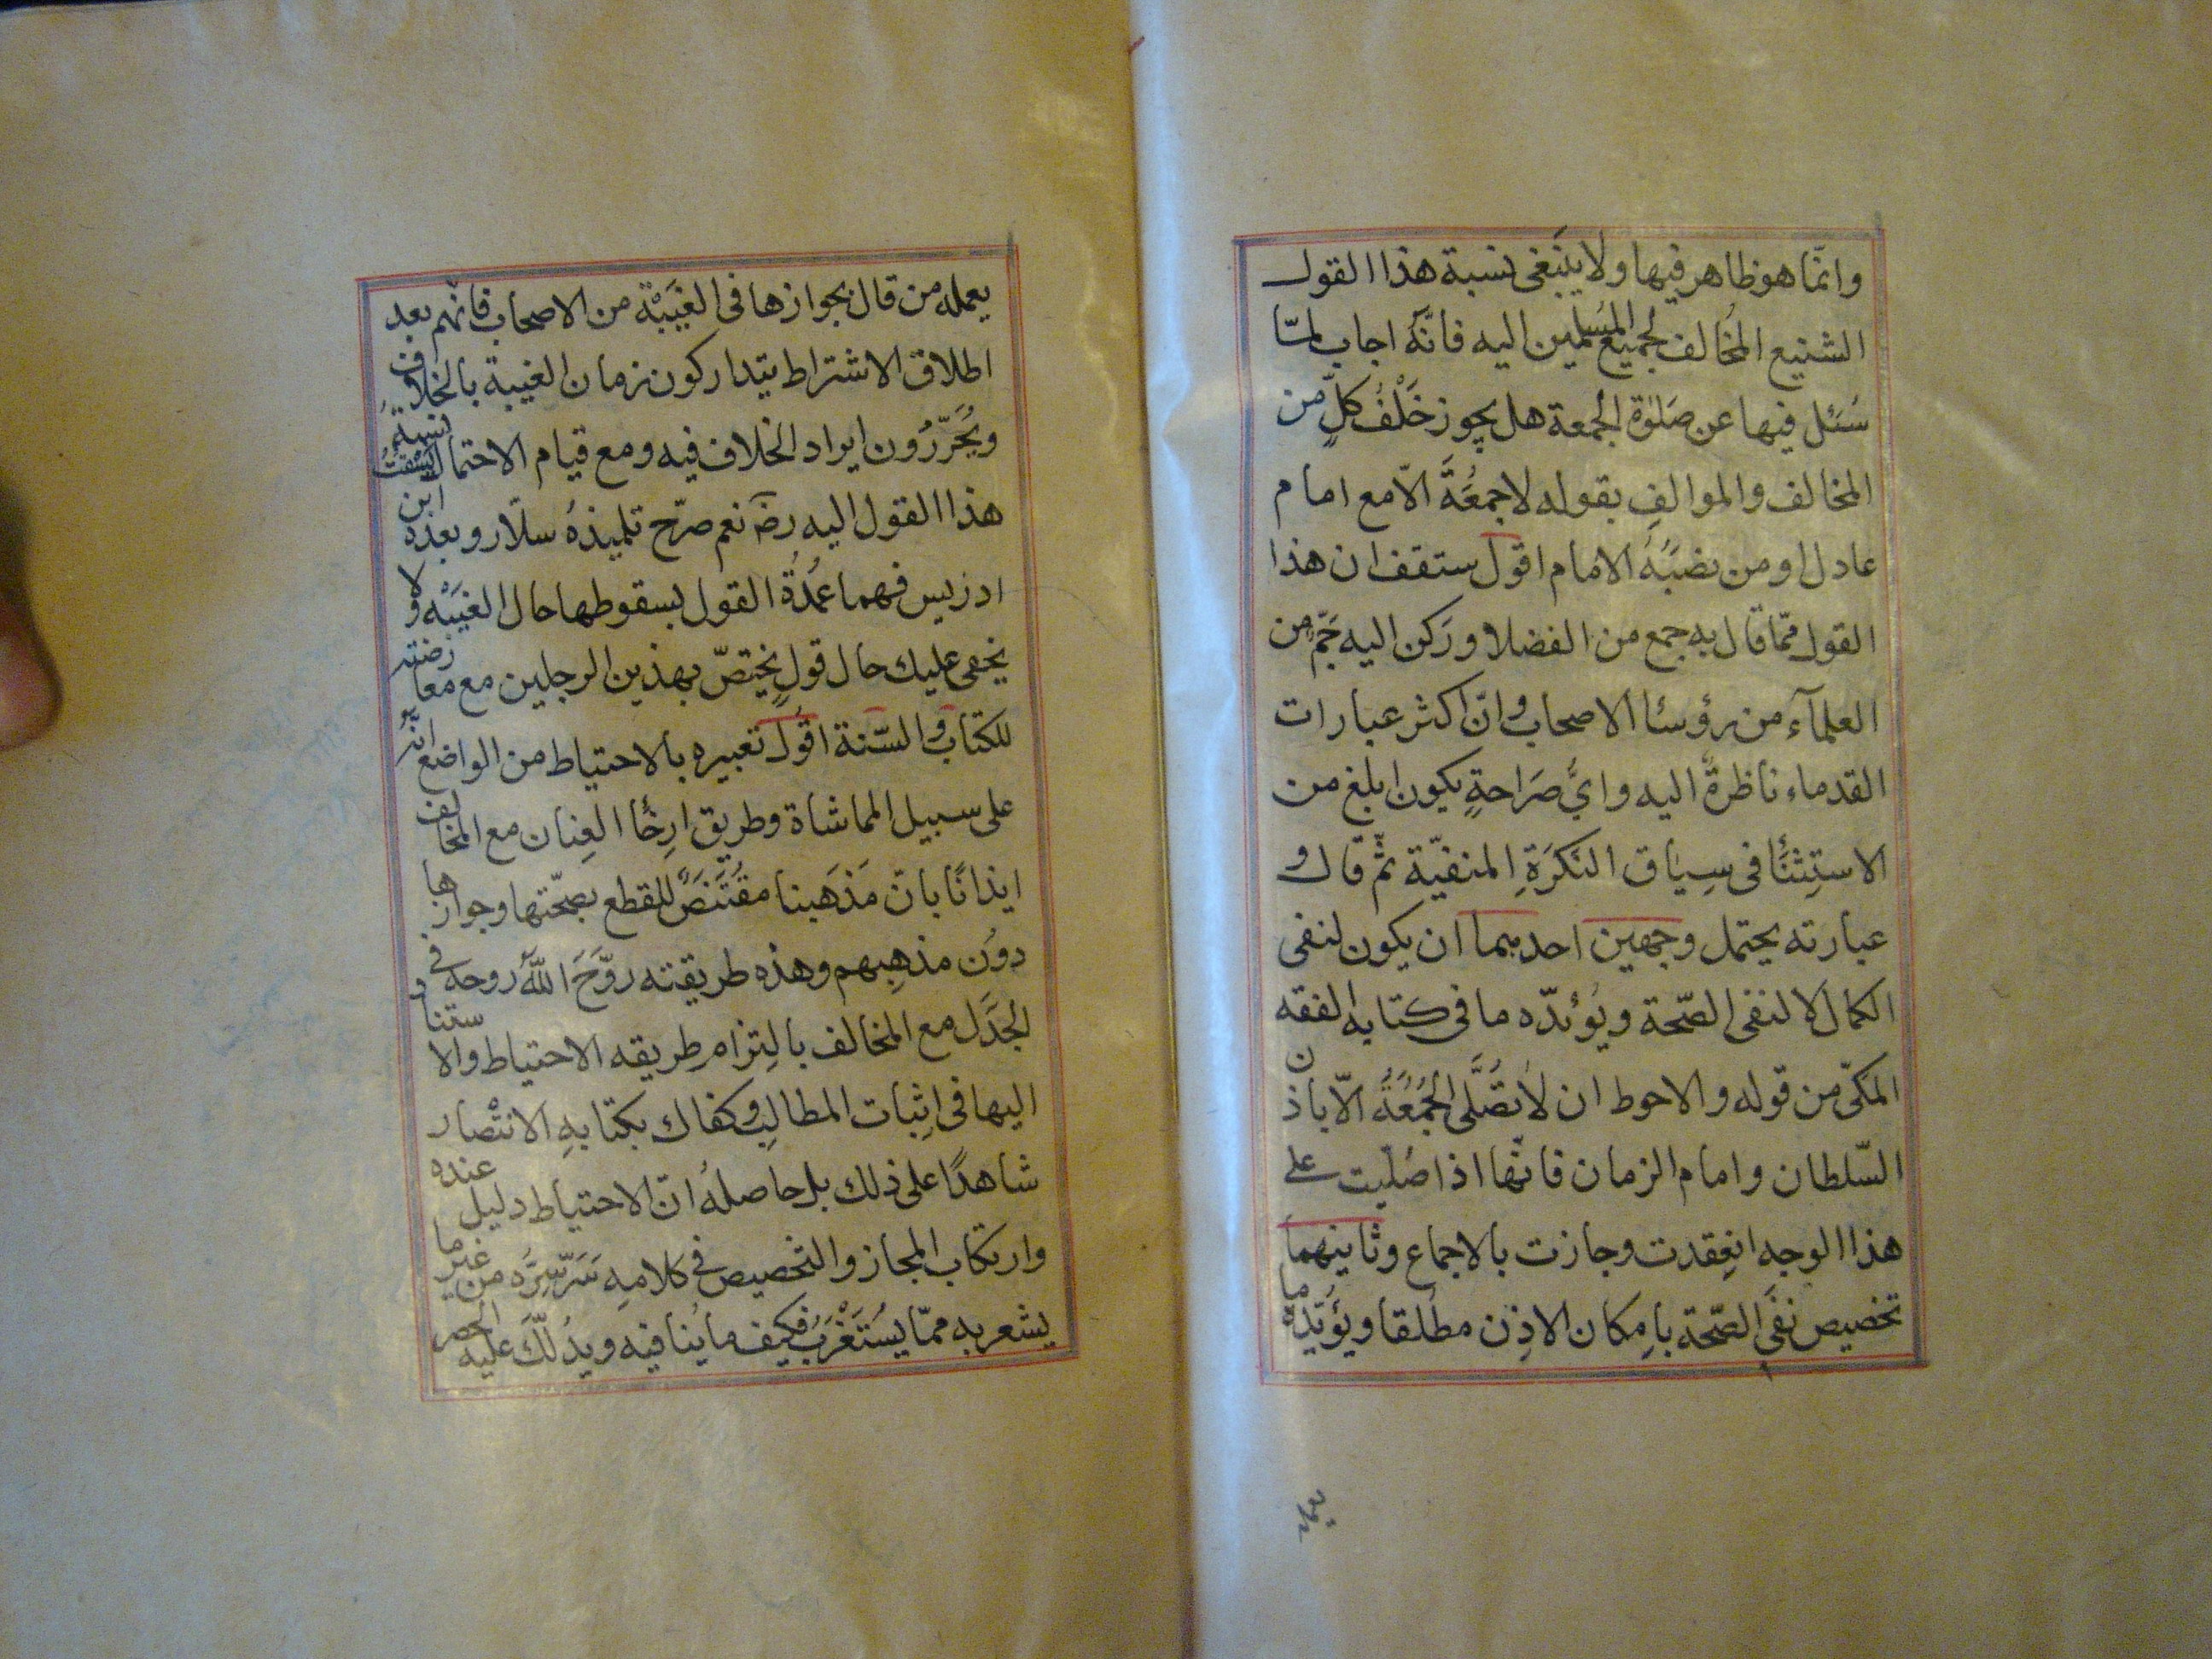 وانّما هو ظاهر فيها ولا ينبغى نسبة هذا القول
الشنيع المخالف لجميع المسلمين اليه فانّه اجاب لمّا
سُئل فيها عن صلوة الجمعة هل يجوز خَلْفُ كلٍّ من
المخالف والموالف بقوله لا جمعَةَ الّا مع امام
عادل او من نصبَهُ الامام اقول ستقف ان هذا
القول ممّا قال به جمع من الفضلا وركن اليه جَمّ من
العلمآء من رؤسا الاصحاب وانّ اكثر عبارات
القدماء ناظرةٌ اليه وايُّ صَراحةٍ يكون ابلغ من
الاستِثنَا فى سِياق النَكَرَةِ المنفيّة ثمّ قال و
عبارته يحتمل وجهين احدهما ان يكون لنفى
الكمال لا لنفى الصّحة ويُؤيّده ما فى كتابه الفقه
المَكّى من قوله والاحوط ان لا تُصَلَّى الجُمُعَةُ الّا باذن
السّلطان وامام الزمان فانّها اذا صُلّيت على
هذا الوجه انعقدت وجازت بالاجماع وثانيهما
تخصيص نفى الصّحة بامكان الاذن مطلقا ويؤيّده ما
يعمله من قال بجوازها فى الغَيْبَة من الاصحاب فانّهم بعد
اطلاق الاشتراط يتداركون زمان الغيبة بالخلاف
ويُحَرّرُون ايراد الخلاف فيه ومع قيام الاحتمال نسبةُ
هذا القول اليه رضَ نعم صرّح تلميذهُ سلّار وبعدهُ ابن
ادريس فهما عُمدَةُ القول بسقوطها حال الغيبَه ولا
يخفى عليك حال قولٍ يختصّ بهذين الرجلين مع معارضته
للكتاب والسّنة اقول تعبيره بالاحتياط من الواضع انّه
على سبيل المماشاة وطريق ارخا العِنان مع المخالف
ايذانًا بانّ مَذهَبنا مقتَضٍ للقطع بصحّتها وجوازها
دوُن مذهبِهم وهذه طريقته روَّحَ اللّهُ روحه فى
الجَدَل مع المخالف بالتزام طريقه الاحتياط والاستناد
اليها فى اِثبات المطالب وكفاك بكتابهِ الانتْصار
شاهدًا على ذلك بل حاصلهُ انّ الاحتياط دليل عنده
وارتكاب المجاز والتخصيص فى كلامهِ سَرّ سِرّه من غير ما
يشعر به ممّا يُستَغْرَبُ فكيف ما يُنافيه ويدُلّك عليه الحصر